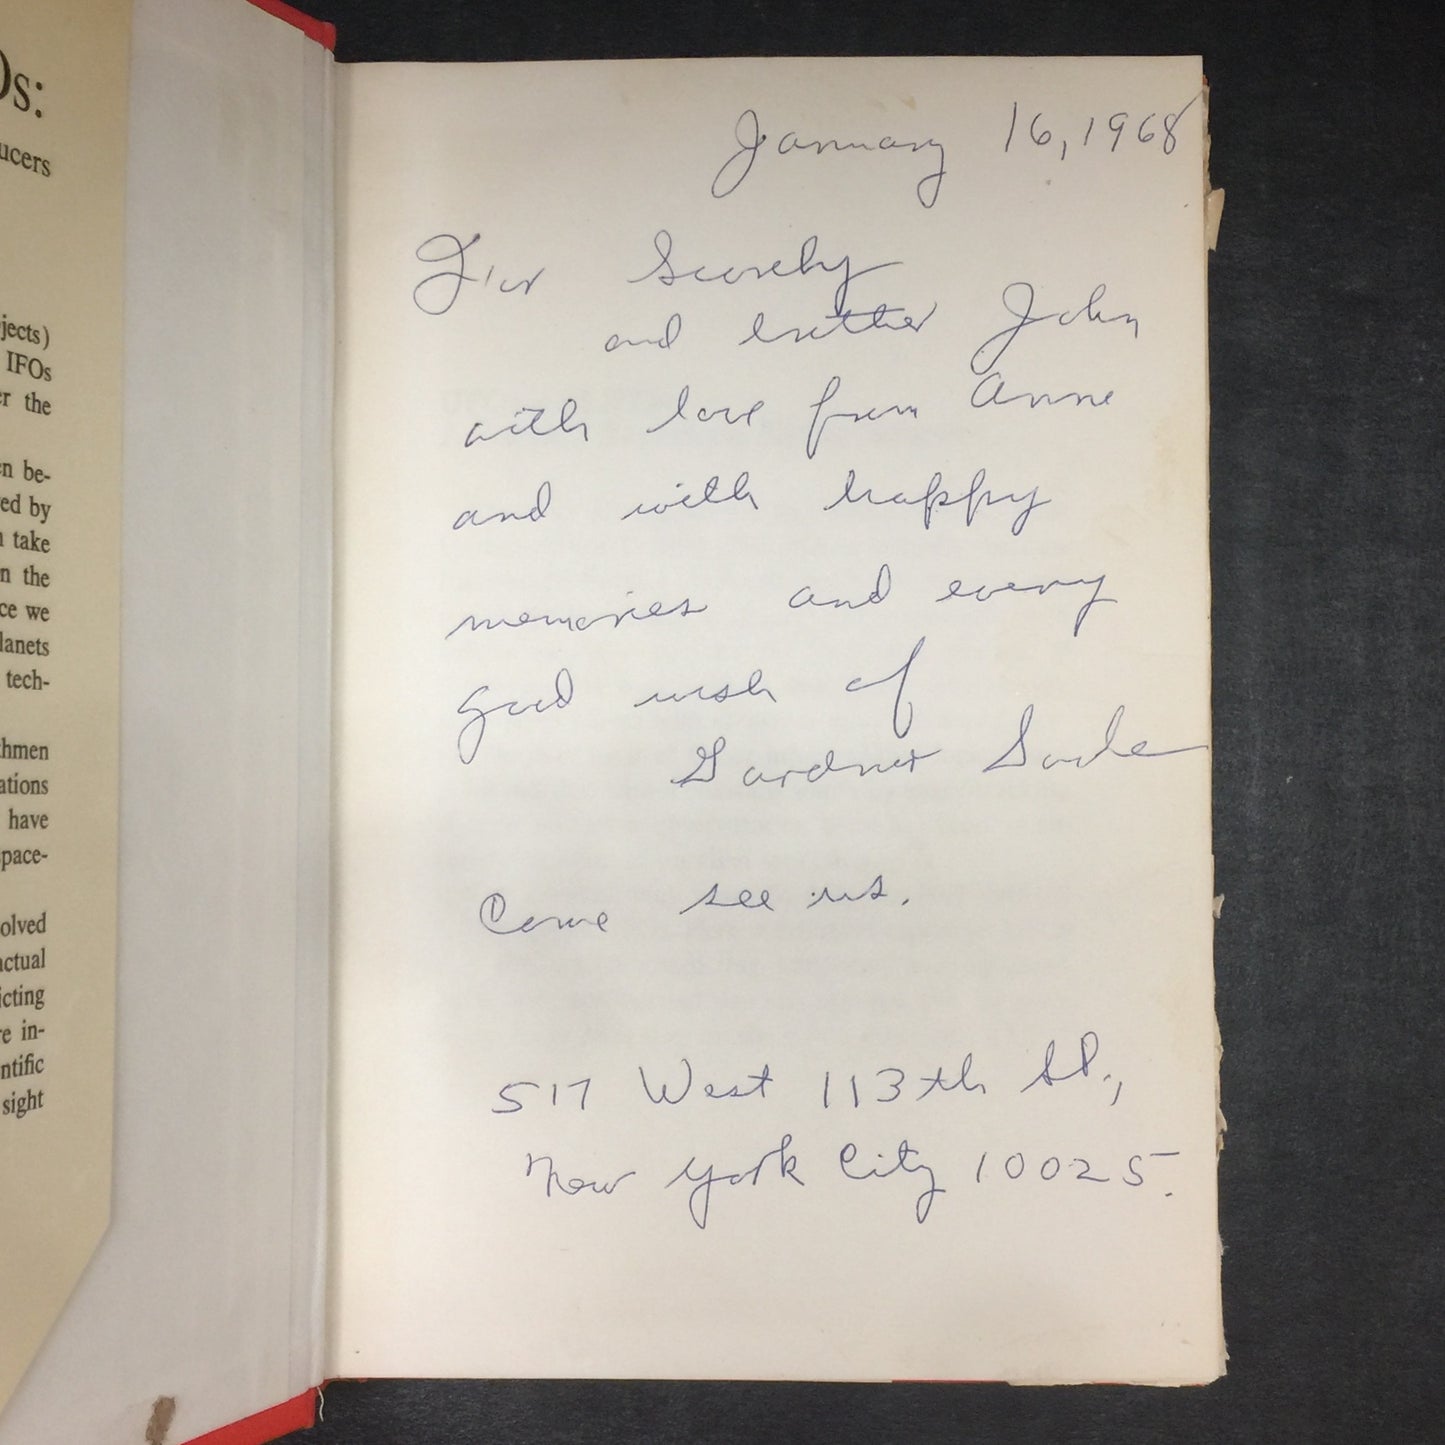 Os:
ucers
jects)
IFOs
er the
en be-
ed by
n take
n the
ce we
lanets
tech-
thmen
ations
have
space-
olved
actual
icting
re in-
entific
sight
January 16, 1968
For
and brother John
with love from Anne
and with happy
memories and every
good wish of
Gardner Soule
Come see us.
517 West 113th St.,
New York City 10025.